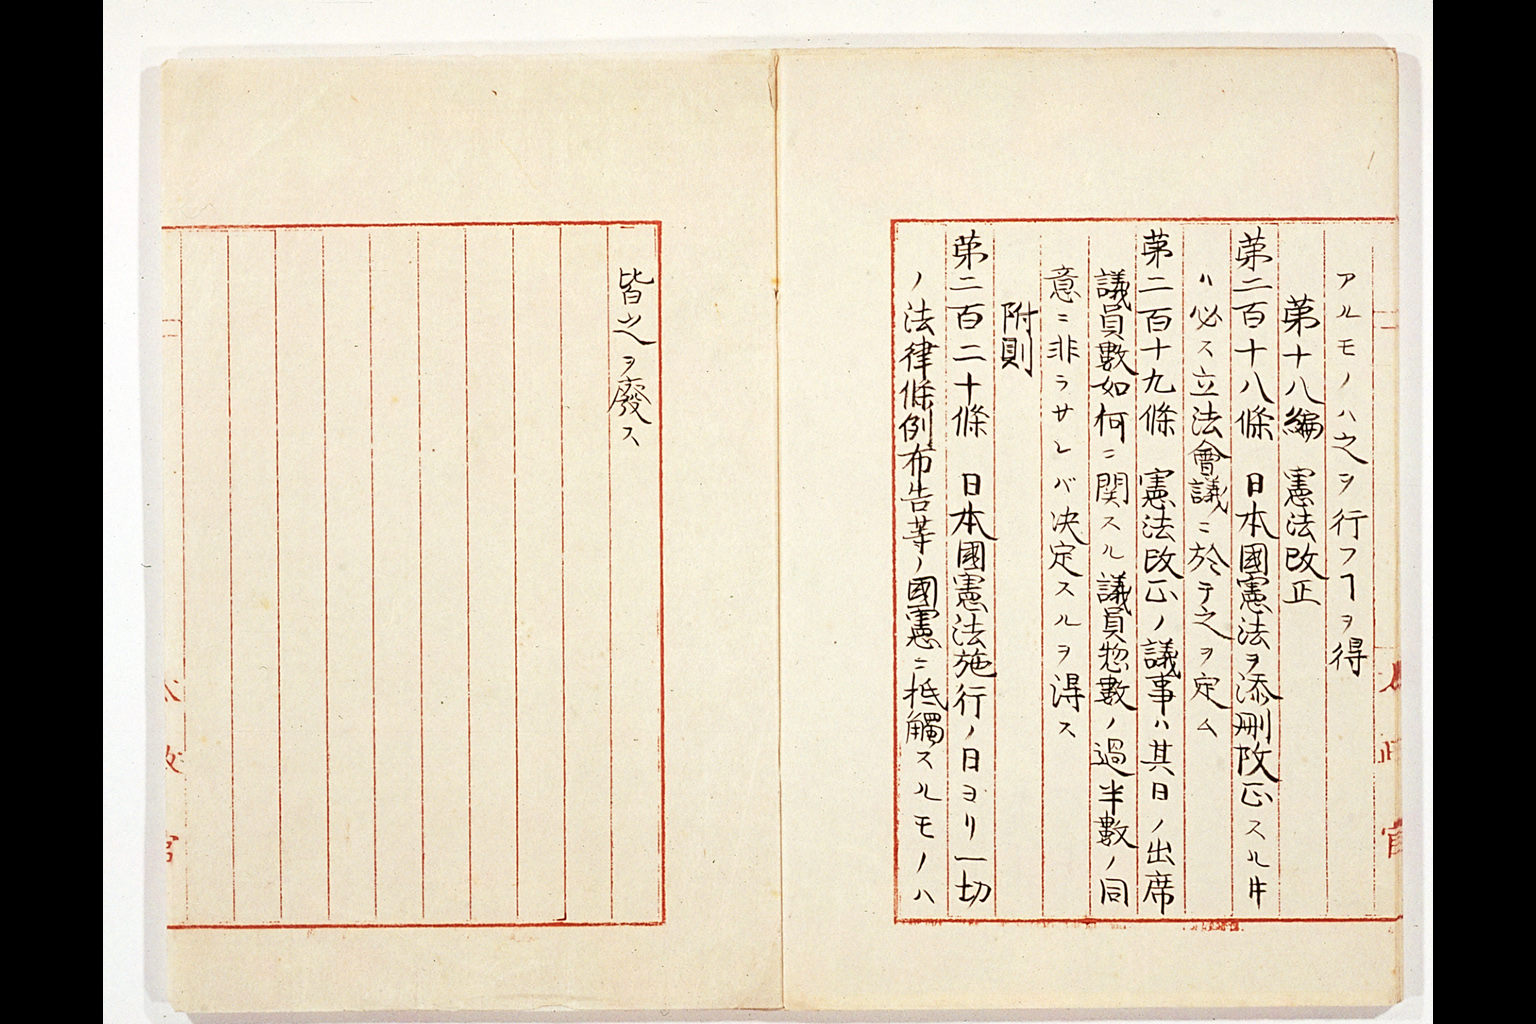 アルモノハ之ヲ行フヿヲ得
第十八編　憲法改正
第二百十八條　日本國憲法ヲ添刪改正スル𪜈
ハ必ス立法會議ニ於テ之ヲ定ム
第二百十九條　憲法改正ノ議事ハ其日ノ出席
議員數如何ニ関スル議員惣數ノ過半數ノ同
意ニ非ラサレバ決定スルヲ得ス
附則
第二百二十條　日本國憲法施行ノ日ヨリ一切
ノ法律條例布告等ノ國憲ニ抵觸スルモノハ
皆之ヲ廢ス